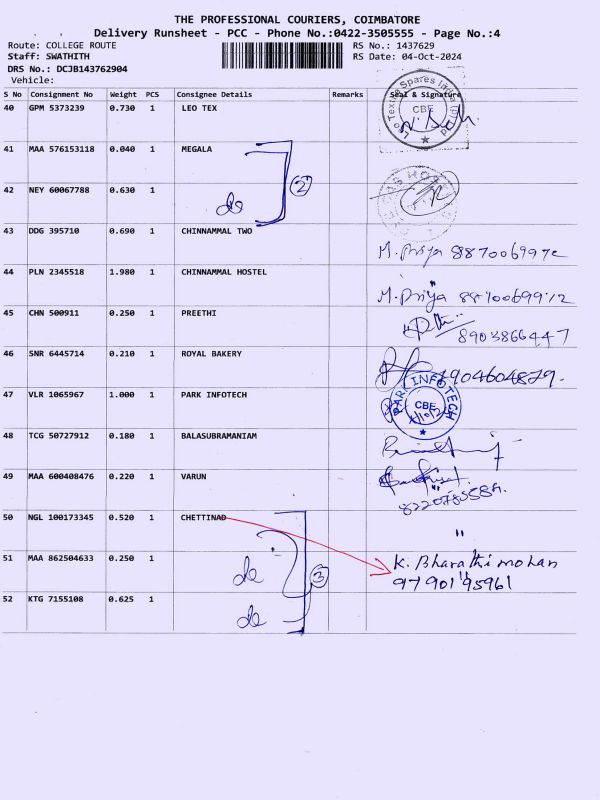 THE PROFESSIONAL COURIERS, COIMBATORE
Delivery Runsheet - PCC - Phone No.:0422-3505555 - Page No.:4
Route: COLLEGE ROUTE RS No.: 1437629
Staff: SWATHITH RS Date: 04-Oct-2024
DRS No.: DCJB143762904
Vehicle:
S No Consignment No Weight PCS Consignee Details Remarks Seal & Signature
40 GPM 5373239 0.730 1 LEO TEX
CBE
41 MAA 576153118 0.040 1 MEGALA
2
42 NEY 60067788 0.630 1
de
43 DDG 395710 0.690 1 CHINNAMMAL TWO
M. Priya
44 PLN 2345518 1.980 1 CHINNAMMAL HOSTEL
M. Priya 8870069972
45 CHN 500911 0.250 1 PREETHI
8903866447
46 SNR 6445714 0.210 1 ROYAL BAKERY
47 VLR 1065967 1.000 1 PARK INFOTECH
PARK INFOTECH
CBE
48 TCG 50727912 0.180 1 BALASUBRAMANIAM
49 MAA 600408476 0.220 1 VARUN
50 NGL 100173345 0.520 1 CHETTINAD
51 MAA 862504633 0.250 1
K. Bharathimohan
de 3
52 KTG 7155108 0.625 1
de